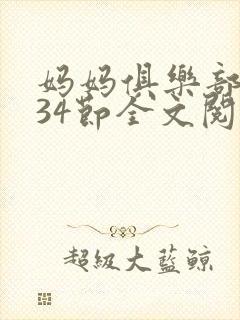 妈妈俱樂部
34節全文閱
超級大藍鯨